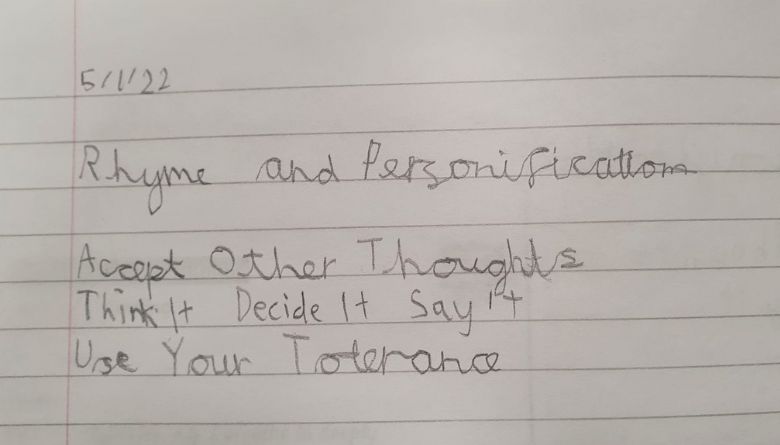 5/1/22
Rhyme and Personification
Accept Other Thoughts
Think It Decide It Say It
Use Your Tolerance